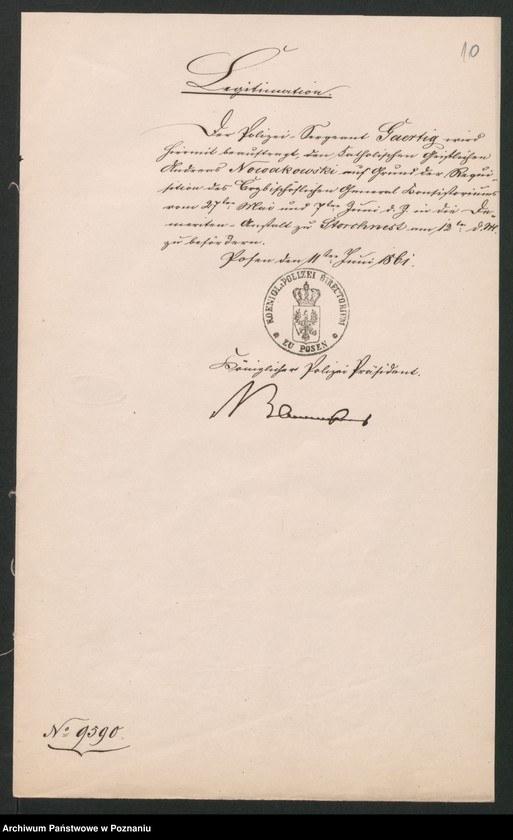 10
Legitimation.
Der Polizei-Sergeant Gaertig wird
hiermit beauftragt, den katholischen Geistlichen
Andreas Nowakowski auf Grund der Requi-
sition des Erzbischöflichen General Konsistoriums
vom 27ten Mai und 7ten Juni d. J. in die De-
meriten-Anstalt zu Storchnest am 12ten d. Mts.
zu befördern.
Posen den 11ten Juni 1861.
KOENIGL. POLIZEI DIRECTORIUM
ZU POSEN
Königlicher Polizei Präsident.
No 9590.
Archiwum Państwowe w Poznaniu